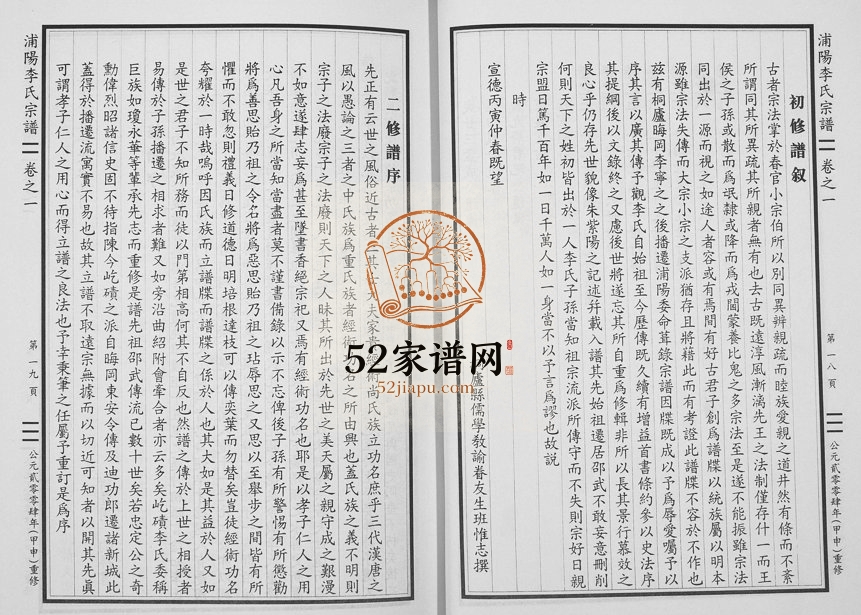 浦陽李氏宗譜
卷之一
第一八頁
公元貳零零肆年(甲申)重修
初修譜叙
古者宗法掌於春官小宗伯所以別同異辨親疏而睦族愛親之道井然有條而不紊
所謂同其所異疏其所親者無有也去古既遠淳風漸漓先王之法制僅存什一而王
侯之子孫或散而爲氓隸或降而爲戎閫蒙養比鬼之多宗法至是遂不能振雖宗法
同出於一源而視之如途人者容或有焉間有好古君子創爲譜牒以統族屬以明本
源雖宗法失傳而大宗小宗之支派猶存且將藉此而有考證此譜牒不容於不作也
茲有桐廬晦岡李寧之之後播遷浦陽委命葺錄宗譜因牒既成以予爲辱愛囑予以
序其言以廣其傳予觀李氏自始祖至今歷傳既久續有增益首書條約參以史法序
其提綱後以文錄終之又慮後世將遂忘其所自重爲修輯非所以長其景行慕效之
良心乎仍存先世貌像朱紫陽之記述并載入譜其先始祖遷居邵武不敢妄意刪削
何則天下之姓初皆出於一人李氏子孫當知祖宗流派所傳守而不失則宗好日親
宗盟日篤千百年如一日千萬人如一身當不以予言爲謬也故説
時
宣德丙寅仲春既望
廬縣儒學教諭眷友生班惟志撰
二修譜序
先正有云世之風俗近古者
大夫家
經術尚氏族立功名庶乎三代漢唐之
風以愚論之三者之中氏族爲重氏族者經術
名之所由興也蓋氏族之義不明則
宗子之法廢宗子之法廢則天下之人昧其所出於先世之美天屬之親守成之艱漫
不如意遂肆志妄爲甚至墜書香絕宗祀又焉有經術功名也耶是以孝子仁人之用
心凡吾身之所當知當盡者莫不謹書備錄以示不忘俾後子孫有所警惕有所懲勸
將爲善思貽乃祖之令名將爲惡思貽乃祖之玷辱思之又思以至舉步之間皆有所
懼而不敢忽則禮義日修道德日明培根達枝可以傳奕葉而勿替矣豈徒經術功名
夸耀於一時哉嗚呼因氏族而立譜牒而譜牒之係於人也其大如是其益於人又如
是世之君子不知所務而徒以門第相高何其不自反也然譜之傳於上世之相授者
易傳於子孫播遷之相求者難又如旁沿曲紹附會牽合者亦云多矣屹磧李氏委稱
巨族如瓊永華等輩承先志而重修是譜先祖邵武傳流已數十世矣若忠定公之奇
勳偉烈昭諸信史固不待指陳今屹磧之派自晦岡東安令傳及迪功郎遷諸新城此
蓋得於播遷流寓實不易也故其立譜不取遠宗無據而以切近可知者以開其先眞
可謂孝子仁人之用心而得立譜之良法也予幸秉筆之任屬予重訂是爲序
浦陽李氏宗譜
卷之一
第一九頁
公元貳零零肆年(甲申)重修
52家谱网
52jiapu.com